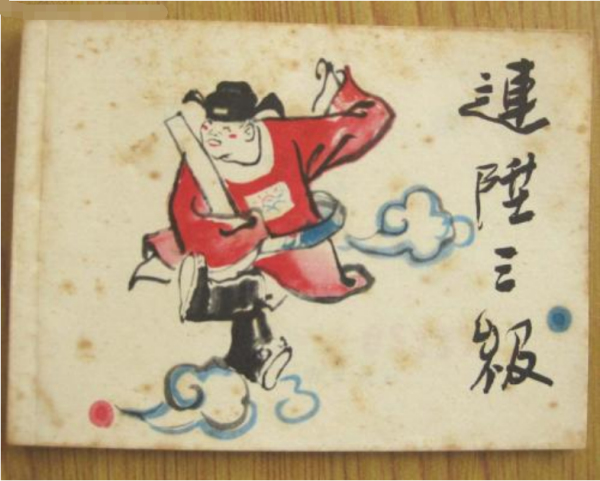 連陞三級